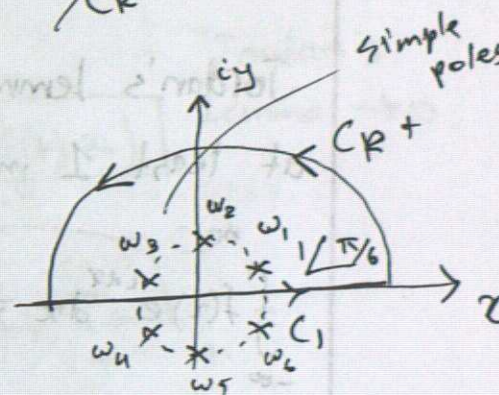 CR
simple
poles
iy
CR+
ω2
ω3
ω1
1
π/6
x
C1
ω4
ω6
ω5